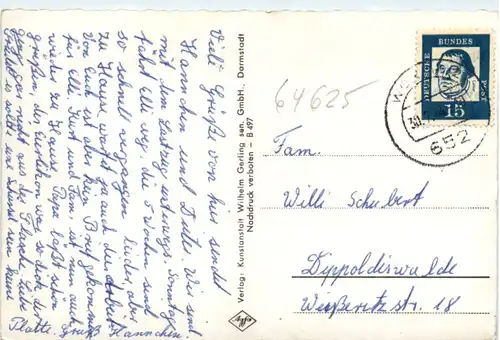 Viele Grüße von hier sendet
Hannchen und Wir sind
mit dem unterwegs. Sonntag
fährt Elli weg, die 5 Wochen sind
so schnell vergangen leider, aber
zu Haus wartet ja auch die Arbeit
Von Kurt ist aber kein Brief gekommen
für Elli. Kurt und Fam. ist nun auch
wieder zu Hause. Papa läßt schön
grüßen, der
ganz gar nicht aus der
wollte um sein Eure
Platte. Gruß Hannchen.
Verlag: Kunstanstalt Wilhelm Gerling sen. GmbH., Darmstadt
Nachdruck verboten - B 497
64625
DEUTSCHE
BUNDES
POST
15
652
Fam.
Willi Schubert
Dippoldiswalde
Weißeritzstr. 18
Agfa